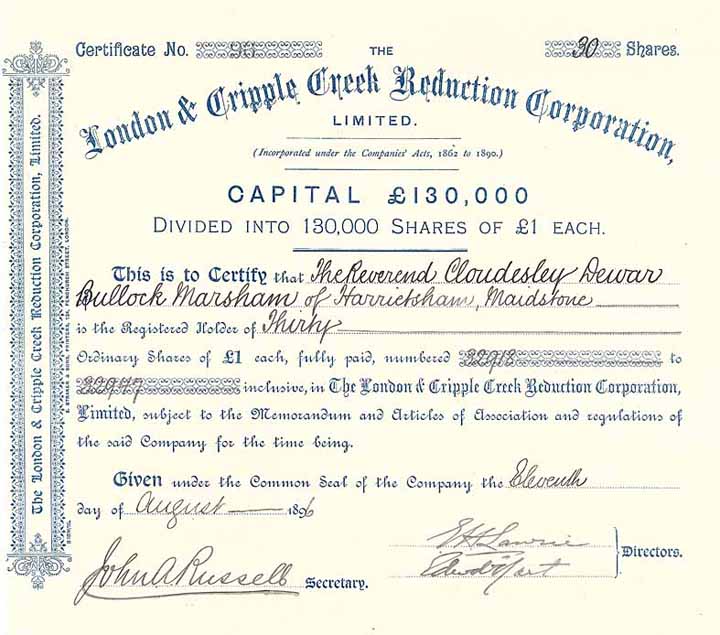 Certificate No. 93 THE 30 Shares.
London & Cripple Creek Reduction Corporation,
LIMITED.
(Incorporated under the Companies' Acts, 1862 to 1890.)
CAPITAL £130,000
DIVIDED INTO 130,000 SHARES OF £1 EACH.
This is to Certify that The Reverend Cloudesley Dewar
Bullock Marsham of Harrietsham, Maidstone
is the Registered Holder of Thirty
Ordinary Shares of £1 each, fully paid, numbered 22918 to
22947 inclusive, in The London & Cripple Creek Reduction Corporation,
Limited, subject to the Memorandum and Articles of Association and regulations of
the said Company for the time being.
Given under the Common Seal of the Company the Eleventh
day of August 1896
John A Russell Secretary.
E H Lawrie
Directors.
The London & Cripple Creek Reduction Corporation, Limited.